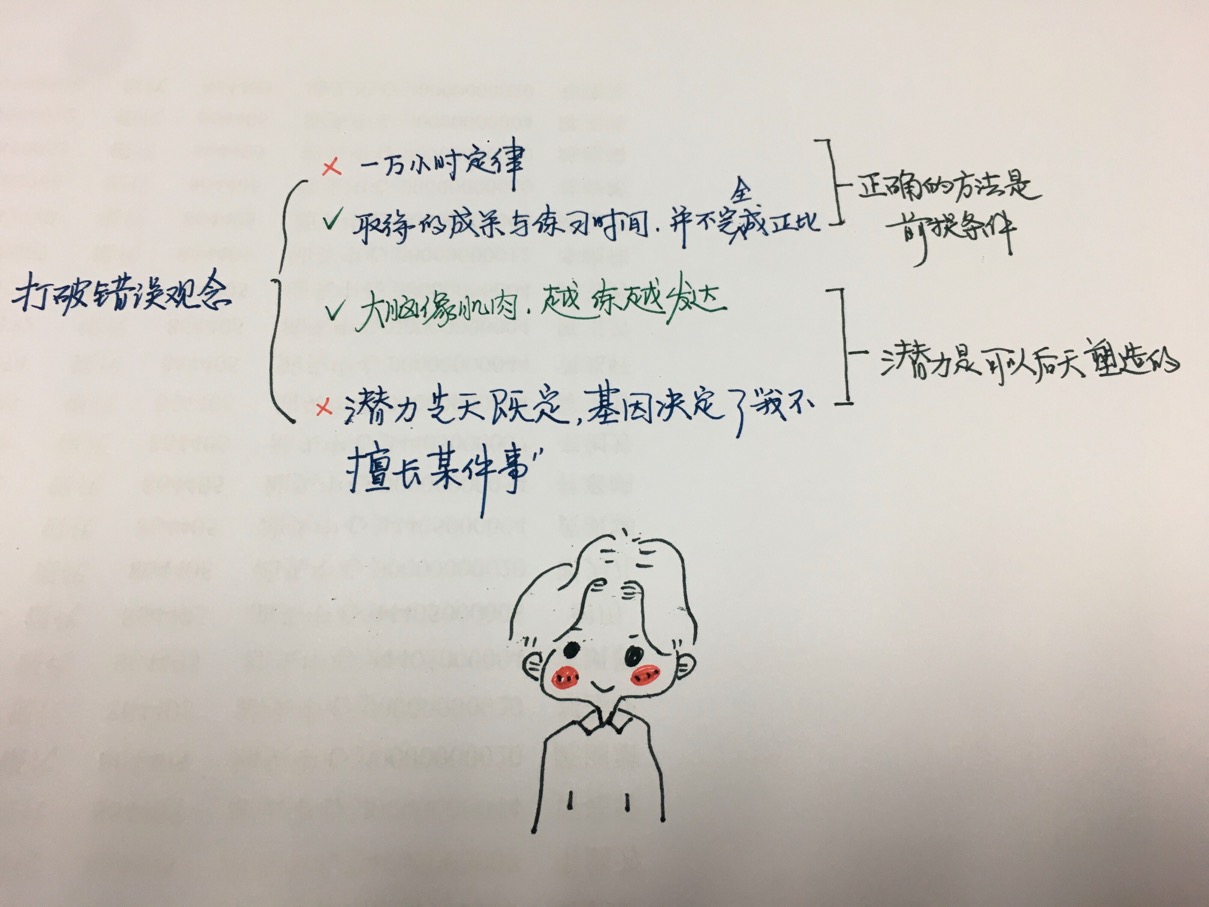 × 一万小时定律
✓ 取得的成果与练习时间,并不完全成正比
正确的方法是
前提条件
打破错误观念
✓ 大脑像肌肉,越练越发达
潜力是可以后天塑造的
× 潜力先天既定,基因决定了我不
擅长某件事”